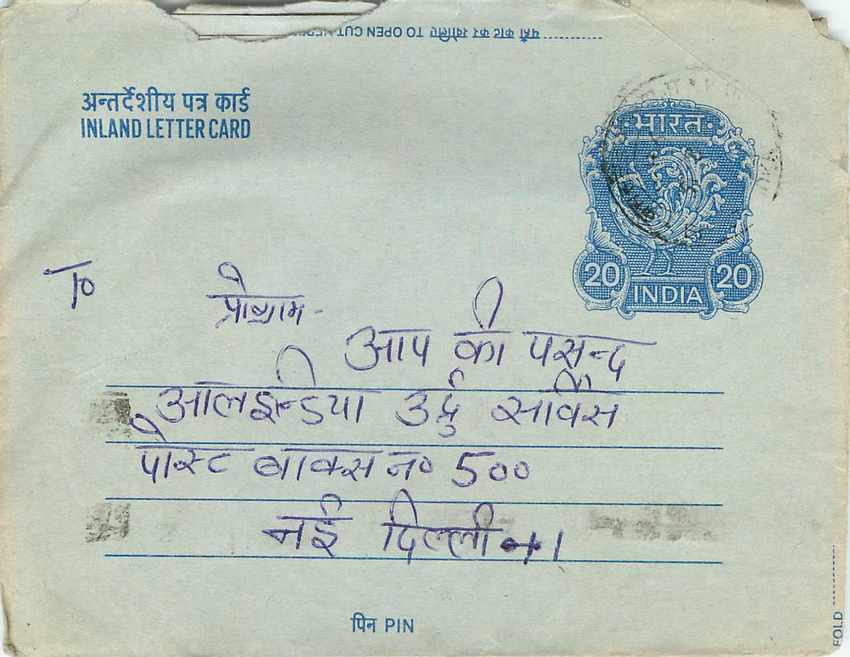 यहाँ काट कर खोलिए TO OPEN CUT
अन्तर्देशीय पत्र कार्ड
INLAND LETTER CARD
भारत
20 20
INDIA
To
प्रोग्राम -
आप की पसन्द
आल इन्डिया उर्दु सर्विस
पोस्ट बाक्स न० 500
नई दिल्ली-1
पिन PIN
FOLD